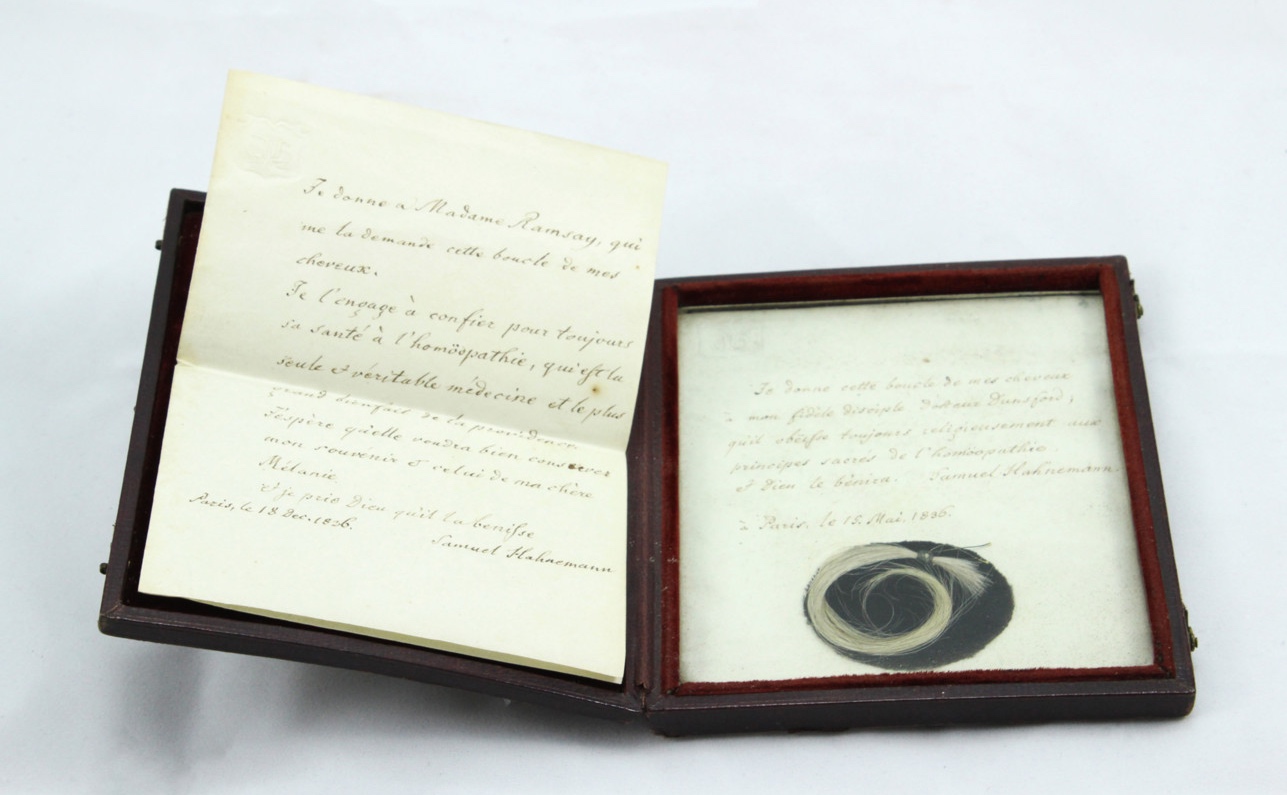 Je donne a Madame Ramsay, qui
me la demande cette boucle de mes
cheveux.
Je l'engage à confier pour toujours
sa santé à l'homöopathie, qui est la
seule et véritable médecine et le plus
grand bienfait de la providence.
J'espère qu'elle voudra bien conserver
mon souvenir et celui de ma chère
Mélanie.
et je prie Dieu qu'il la benisse
Paris, le 18 Dec. 1836.
Samuel Hahnemann
Je donne cette boucle de mes cheveux
à mon fidèle disciple Docteur Dunsford;
qu'il obéisse toujours religieusement aux
principes sacrés de l'homöopathie.
et Dieu le bénira. Samuel Hahnemann.
à Paris, le 15. Mai. 1836.